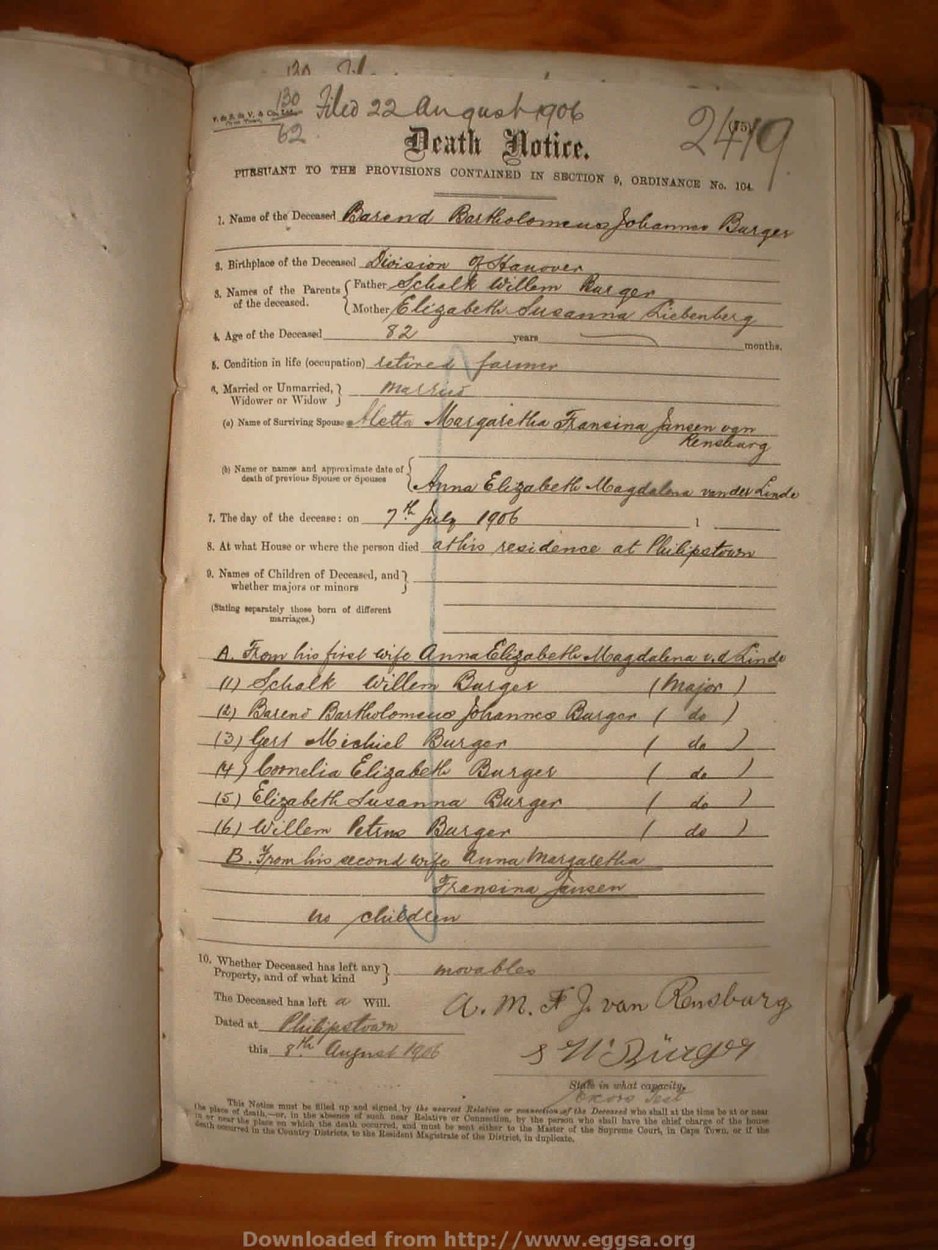 130
V. & R. de V. & Co., Ltd.
62
Filed 22 August 1906
(15)
2419
Death Notice.
PURSUANT TO THE PROVISIONS CONTAINED IN SECTION 9, ORDINANCE No. 104.
1. Name of the Deceased Barend Bartholomeus Johannes Burger
2. Birthplace of the Deceased Division of Hanover
3. Names of the Parents of the deceased. Father Schalk Willem Burger
Mother Elizabeth Susanna Liebenberg
4. Age of the Deceased 82 years months.
5. Condition in life (occupation) retired farmer
6. Married or Unmarried, Widower or Widow married
(a) Name of Surviving Spouse Aletta Margaretha Fransina Jansen van
Rensburg
(b) Name or names and approximate date of
death of previous Spouse or Spouses Anna Elizabeth Magdalena van der Linde
7. The day of the decease: on 7th July 1906 1
8. At what House or where the person died at his residence at Philipstown
9. Names of Children of Deceased, and
whether majors or minors
(Stating separately those born of different
marriages.)
A. From his first wife Anna Elizabeth Magdalena v.d Linde
(1) Schalk Willem Burger (Major)
(2) Barend Bartholomeus Johannes Burger ( do )
(3) Gert Michiel Burger ( do )
(4) Cornelia Elizabeth Burger ( do )
(5) Elizabeth Susanna Burger ( do )
(6) Willem Petrus Burger ( do )
B. From his second wife Anna Margaretha
Fransina Jansen
no children
10. Whether Deceased has left any
Property, and of what kind movables
The Deceased has left a Will.
A. M. F J. van Rensburg
Dated at Philipstown
this 8th August 1906
S W Burger
State in what capacity.
Exors Test
This Notice must be filled up and signed by the nearest Relative or connection of the Deceased who shall at the time be at or near
the place of death,—or, in the absence of such near Relative or Connection, by the person who shall have the chief charge of the house
in or near the place on which the death occurred, and must be sent either to the Master of the Supreme Court, in Cape Town, or if the
death occurred in the Country Districts, to the Resident Magistrate of the District, in duplicate.
Downloaded from http://www.eggsa.org